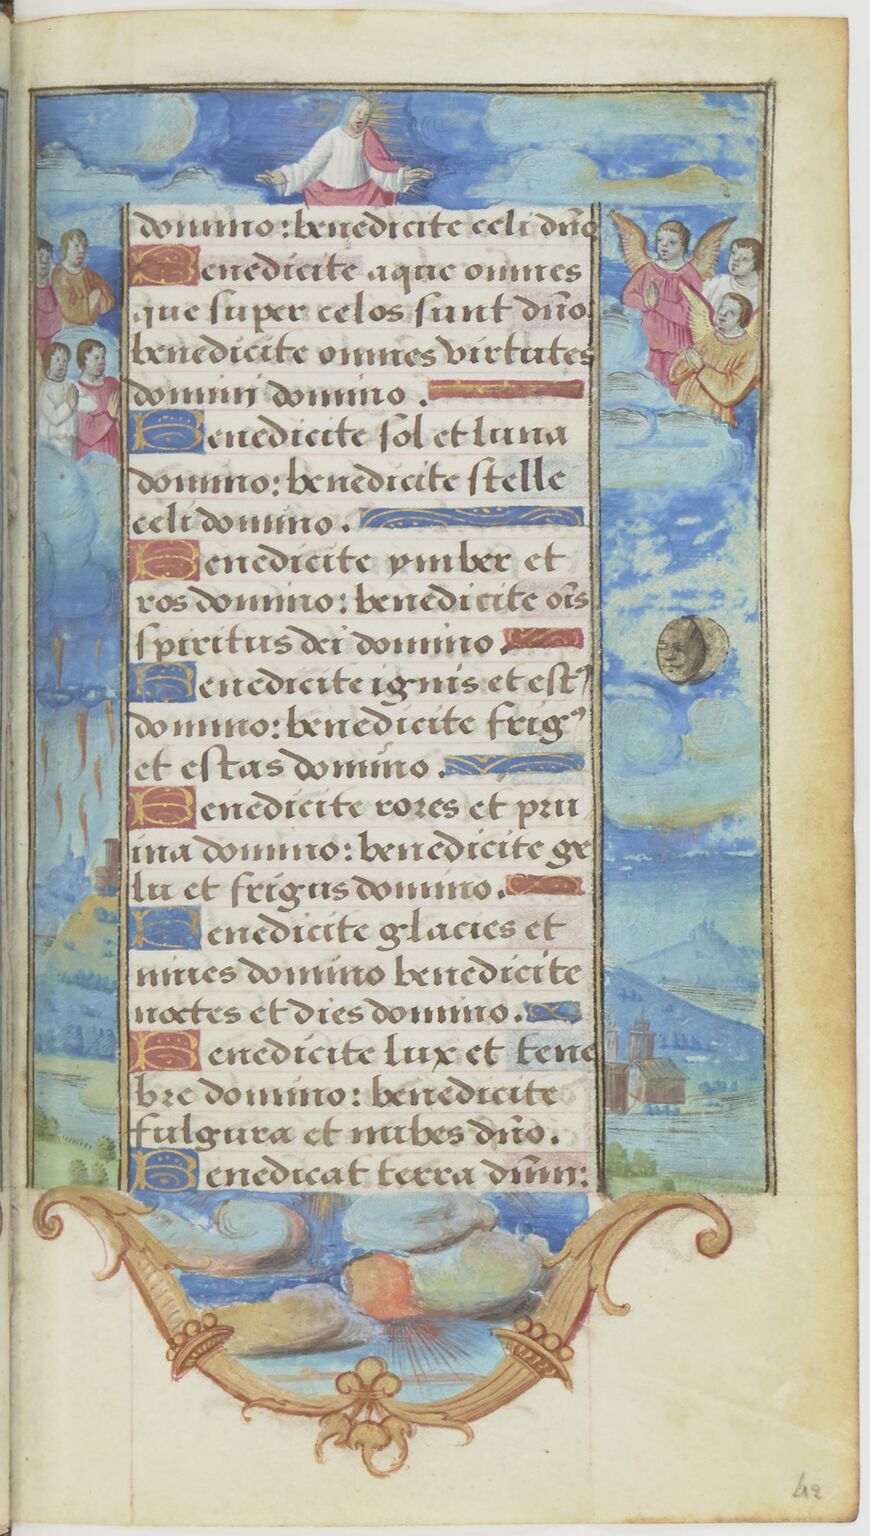 domino: benedicite celi dn̄o
Benedicite aque omnes
que super celos sunt dn̄o.
benedicite omnes virtutes
domini domino .
Benedicite sol et luna
domino: benedicite stelle
celi domino .
Benedicite ymber et
ros domino: benedicite oīs
spiritus dei domino .
Benedicite ignis et estꝰ
domino: benedicite frigꝰ
et estas domino .
Benedicite rores et pru
ina domino: benedicite ge
lu et frigus domino .
Benedicite glacies et
niues domino benedicite
noctes et dies domino .
Benedicite lux et tene
bre domino: benedicite
fulgura et nubes dn̄o .
Benedicat terra dn̄m:
42